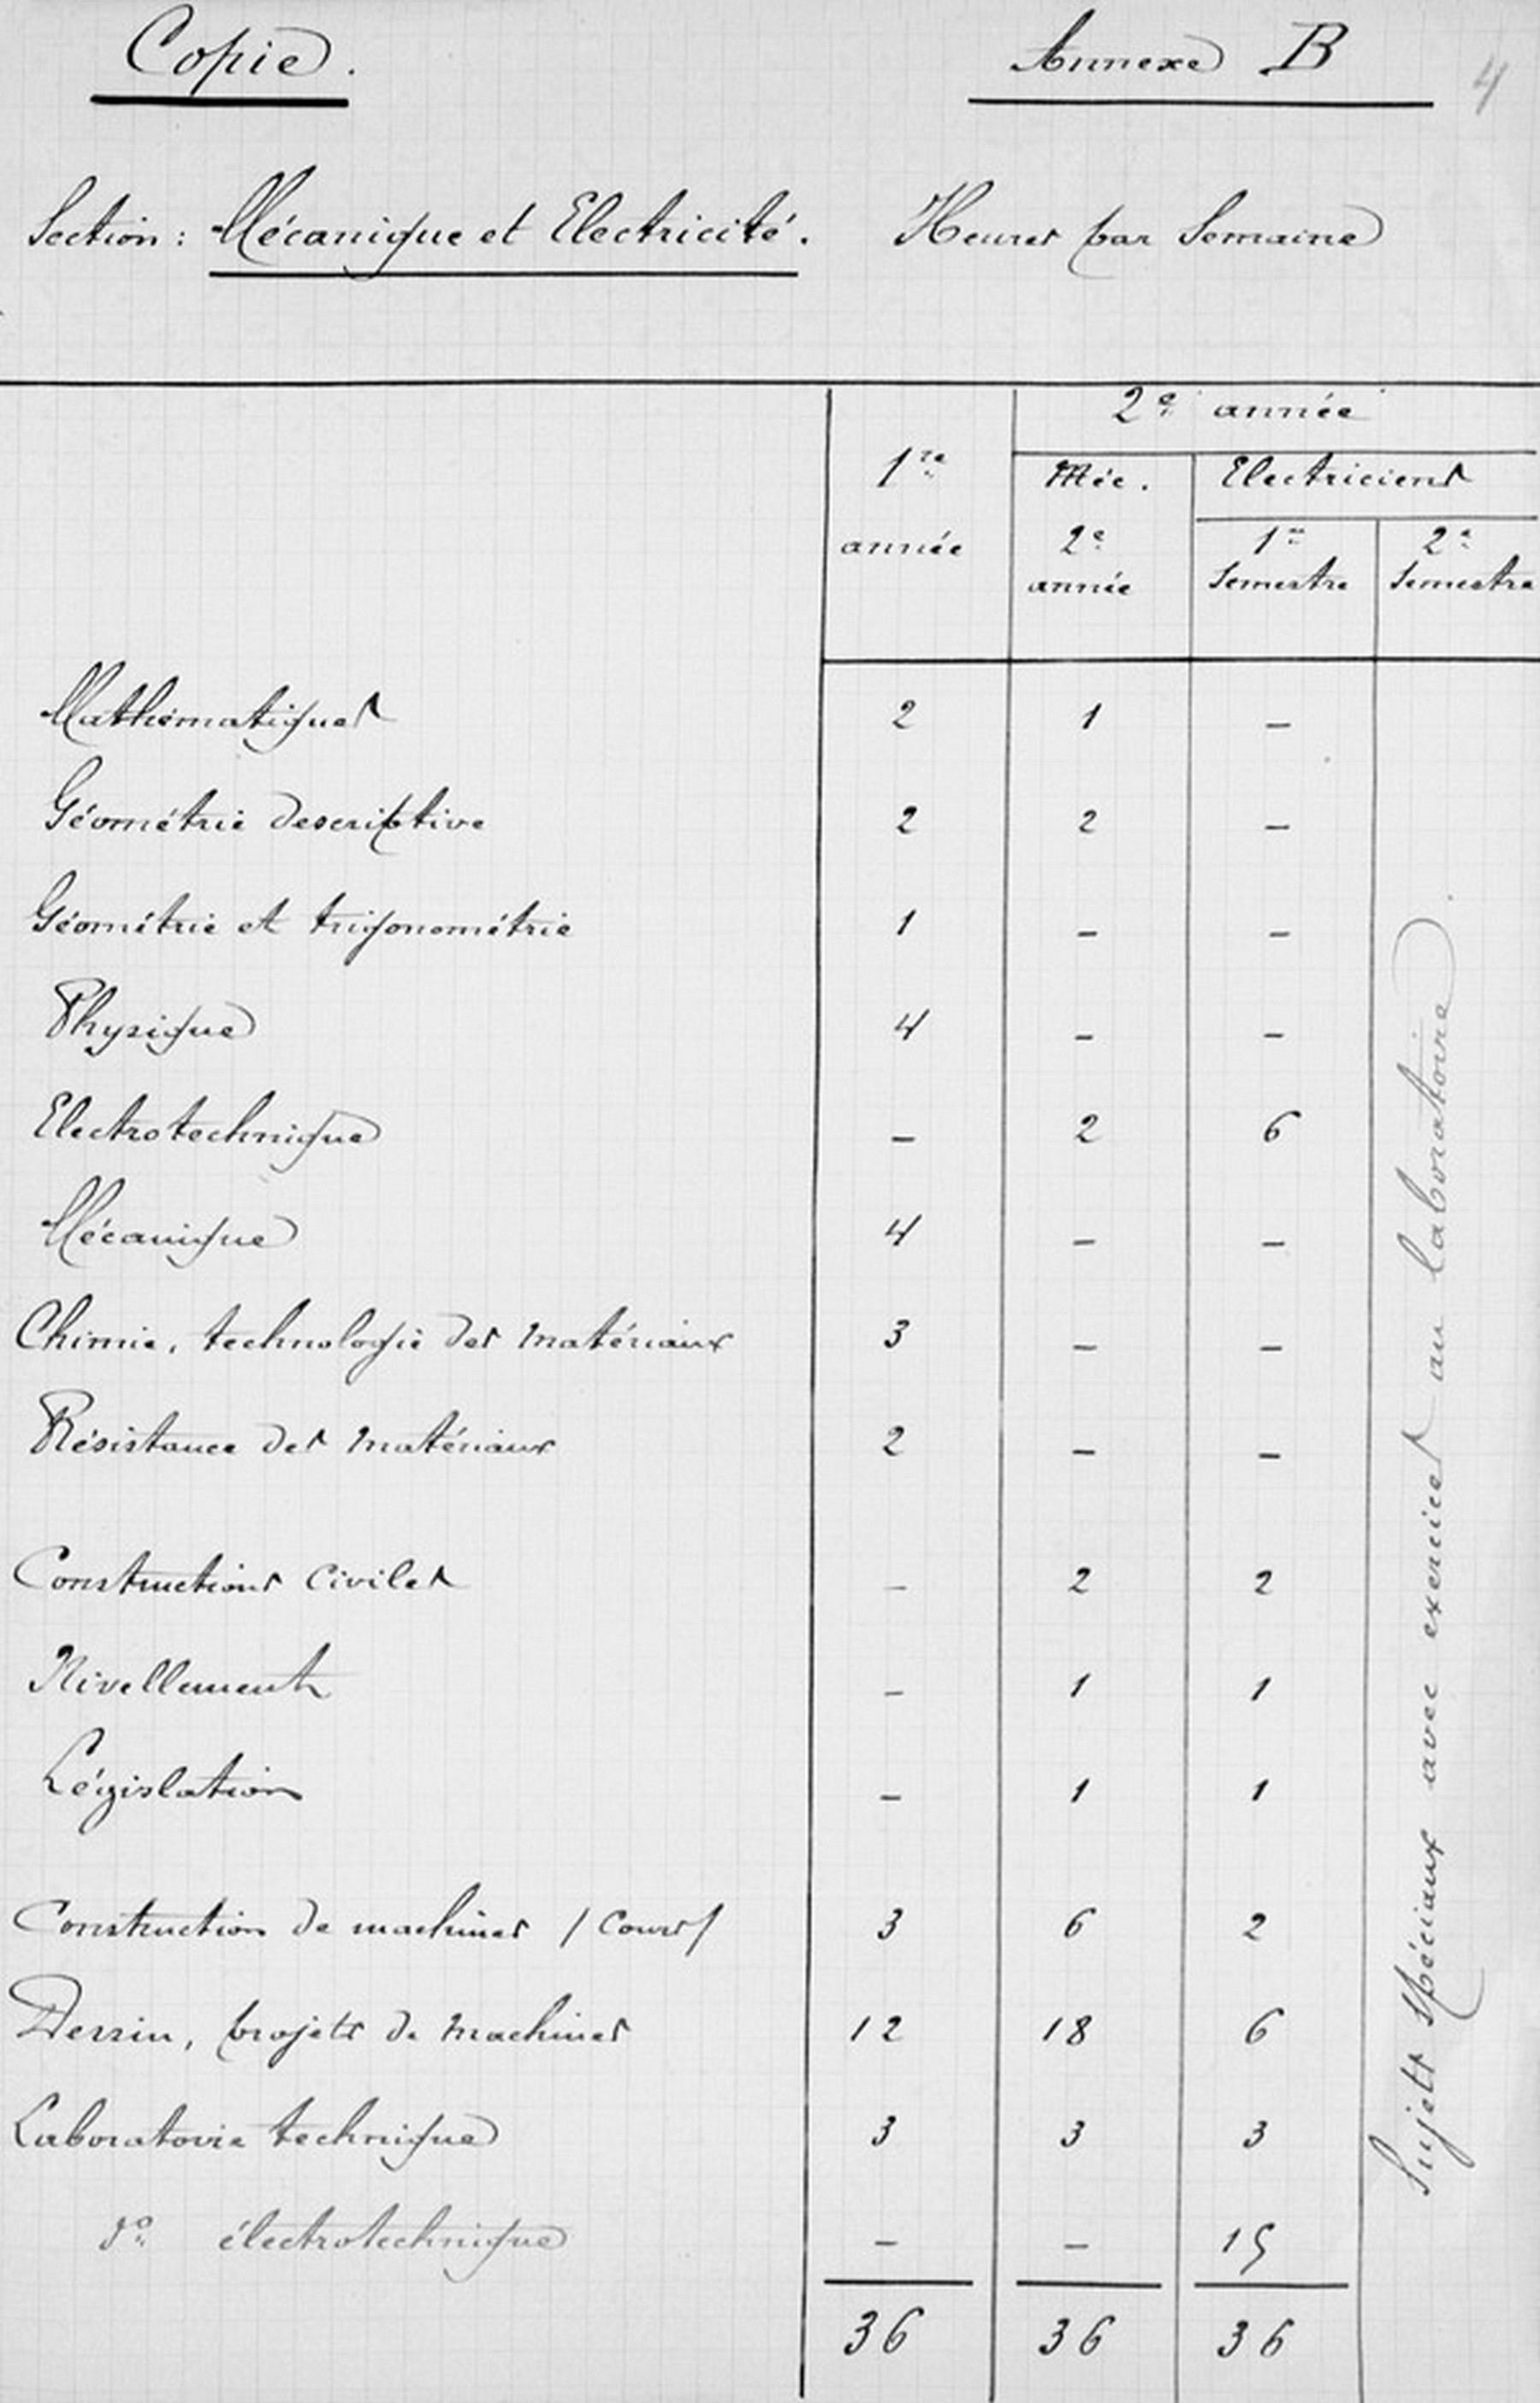 Copie.
Annexe B
4
Section: Mécanique et Electricité. Heures par Semaine
2e année
1re année
Méc. 2e année
Electriciens
1er Semestre
2e Semestre
Mathématiques 2 1 –
Géométrie descriptive 2 2 –
Géométrie et trigonométrie 1 – –
Physique 4 – –
Electrotechnique – 2 6
Mécanique 4 – –
Chimie, technologie des matériaux 3 – –
Résistance des matériaux 2 – –
Constructions civiles – 2 2
Nivellement – 1 1
Législation – 1 1
Construction de machines / Cours / 3 6 2
Dessin, projets de machines 12 18 6
Laboratoire technique 3 3 3
do électrotechnique – – 15
36 36 36
Sujets spéciaux avec exercices au laboratoire